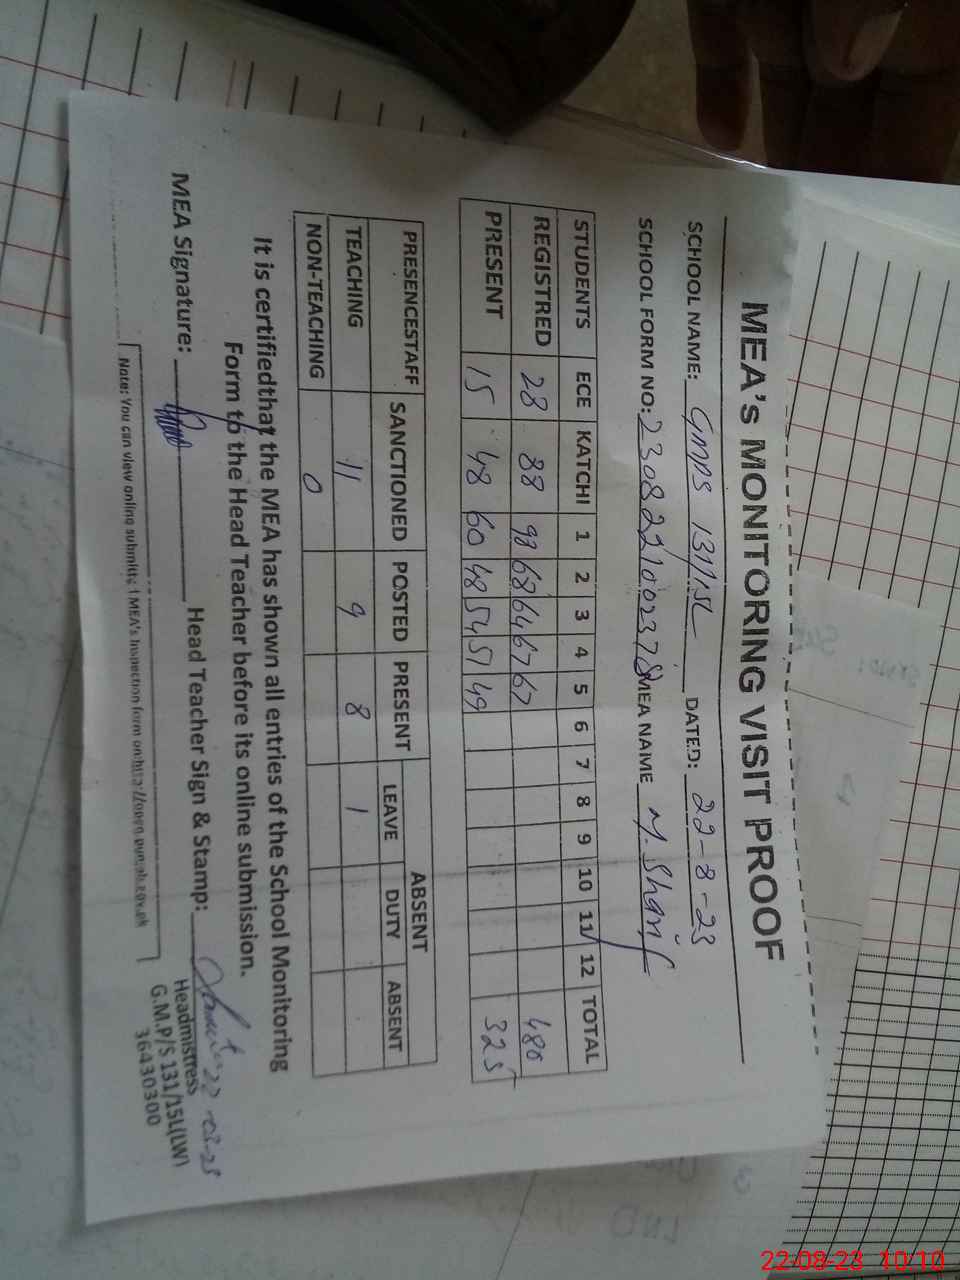 MEA's MONITORING VISIT PROOF
SCHOOL NAME: GMPS 131/15L DATED: 22-8-23
SCHOOL FORM NO: 2308221002378 MEA NAME M. Sharif
STUDENTS ECE KATCHI 1 2 3 4 5 6 7 8 9 10 11 12 TOTAL
REGISTRED 28 88 98 68 64 67 67 480
PRESENT 15 48 60 48 54 51 49 325
PRESENCESTAFF SANCTIONED POSTED PRESENT ABSENT
LEAVE DUTY ABSENT
TEACHING 11 9 8 1
NON-TEACHING 0
It is certifiedthat the MEA has shown all entries of the School Monitoring
Form to the Head Teacher before its online submission.
MEA Signature: Head Teacher Sign & Stamp:
Headmistress
G.M.P/S 131/15L(LW)
36430300
Note: You can view online submitted MEA's Inspection form on:http://open.punjab.gov.pk
22-08-23 10:10